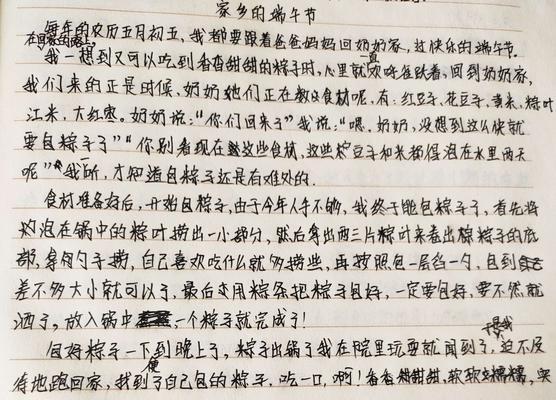 家乡的端午节
每年的农历五月初五，我都要跟着爸爸妈妈回奶奶家，过快乐的端午节。
在回家的路上，
我一想到又可以吃到香香甜甜的粽子时，心里就一直欢呼雀跃着，回到奶奶家，
我们来的正是时候，奶奶她们正在教食材呢，有：红豆子，花豆子，黄米，粽叶
江米，大红枣。奶奶说：“你们回来了”我说：“嗯，奶奶，没想到这么快就
要包粽子了”“你别看现在这些食材，这些粽豆子和米都得泡在水里两天
呢”我一听，才知道包粽子还是有难处的．
食材准备好后，开始包粽子，由于今年人手不够，我终于能包粽子了，首先将
泡在锅中的粽叶捞出一小部分，然后拿出两三片粽叶来卷出粽子的底
部，拿勺子捞，自己喜欢吃什么就多捞些，再按照包一层舀一勺，包到
差不多大小就可以了，最后要用粽条把粽子包好，一定要包好，要不然就
洒了，放入锅中一个粽子就完成了！
包好粽子一下到晚上了，粽子出锅了我在院里玩耍就闻到了，于是我迫不及
待地跑回家，找到了自己包的粽子，便吃一口，啊！香香甜甜，软软糯糯，实